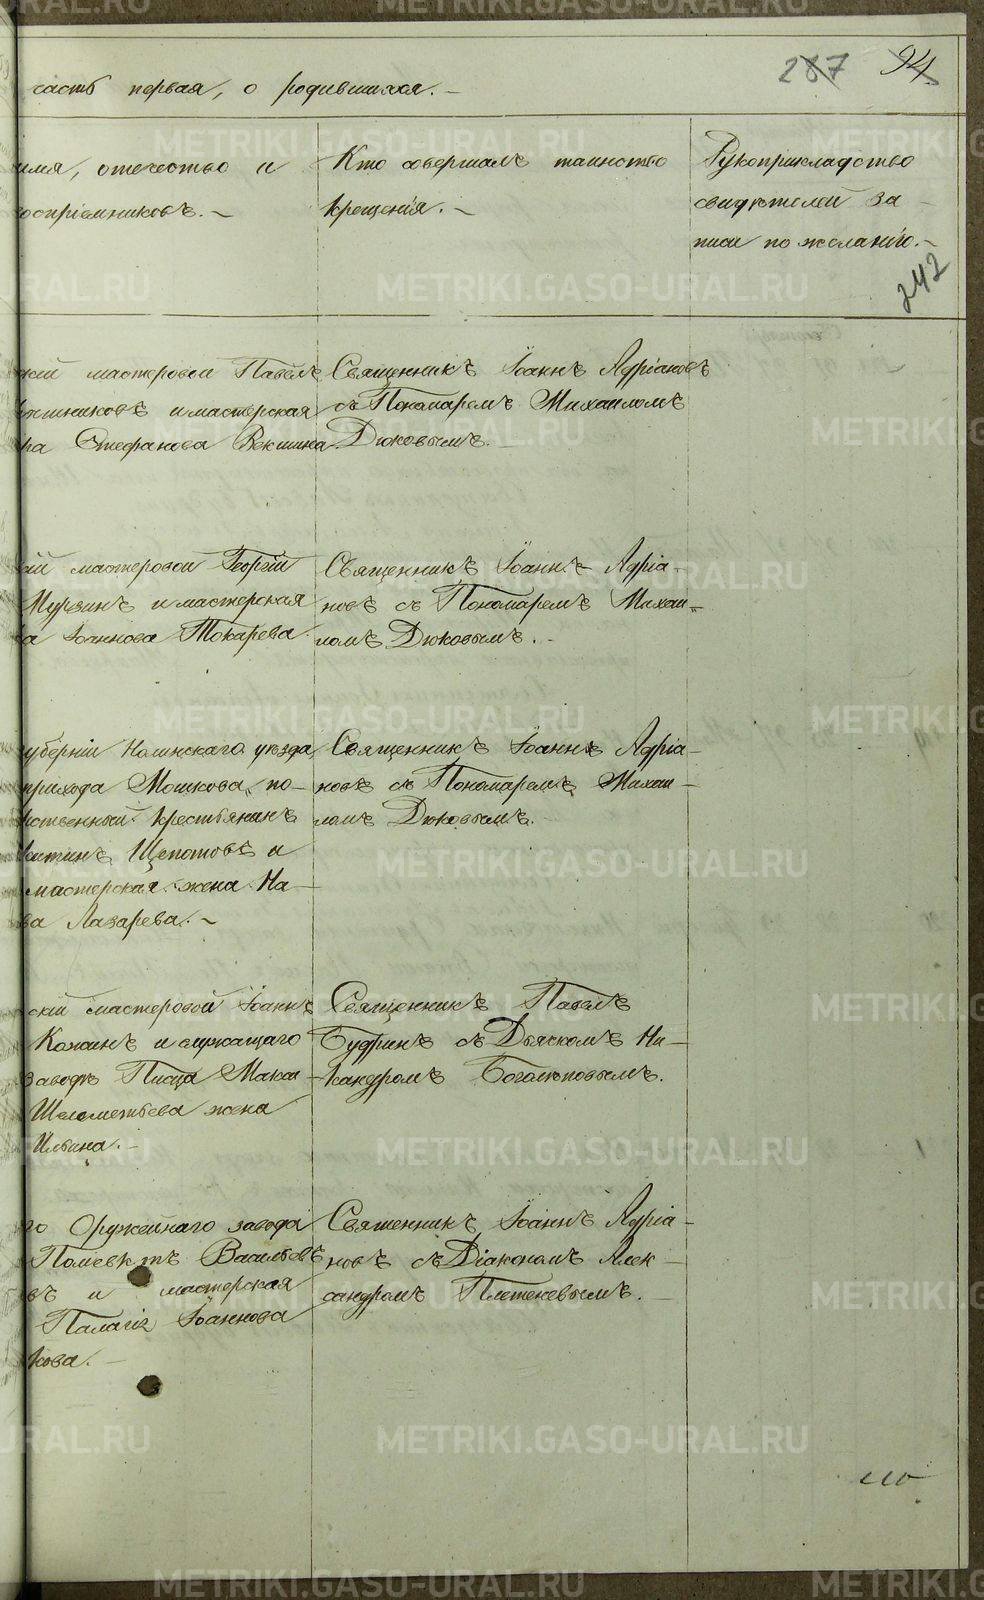 287 94
часть первая, о родившихся. –
имя, отечество и
оспріемниковъ. –
Кто совершалъ таинство
крещенія. –
Рукоприкладство
свидѣтелей за-
писи по желанію. –
242
скій мастеровой Павелъ
и мастерская
ра Стефанова Векшина
Священникъ Іоаннъ Адріановъ
съ Пономаремъ Михаиломъ
Дюковымъ. –
кій мастеровой Георгій
Мурзинъ и мастерская
ва Іоаннова Токарева
Священникъ Іоаннъ Адріа-
новъ съ Пономаремъ Михаи-
ломъ Дюковымъ. –
уберніи Нолинскаго уѣзда,
прихода Мошкова, по-
рственный крестьянинъ
Щепотовъ и
мастерская жена На-
ва Лазарева. –
Священникъ Іоаннъ Адріа-
новъ съ Пономаремъ Михаи-
ломъ Дюковымъ. –
скій мастеровой Іоаннъ
Кожинъ и служащаго
заводѣ Писца Макси-
Шелеметьева жена
Ильина. –
Священникъ Павелъ
Будринъ съ Дьячкомъ Ни-
кандромъ Боголѣповымъ.
го Оружейнаго завода
Полевктъ Васильевъ
въ и мастерская
Палагія Іоаннова
кова. –
Священникъ Іоаннъ Адріа-
новъ съ Діакономъ Алек-
сандромъ Плетеневымъ. –
METRIKI.GASO-URAL.RU